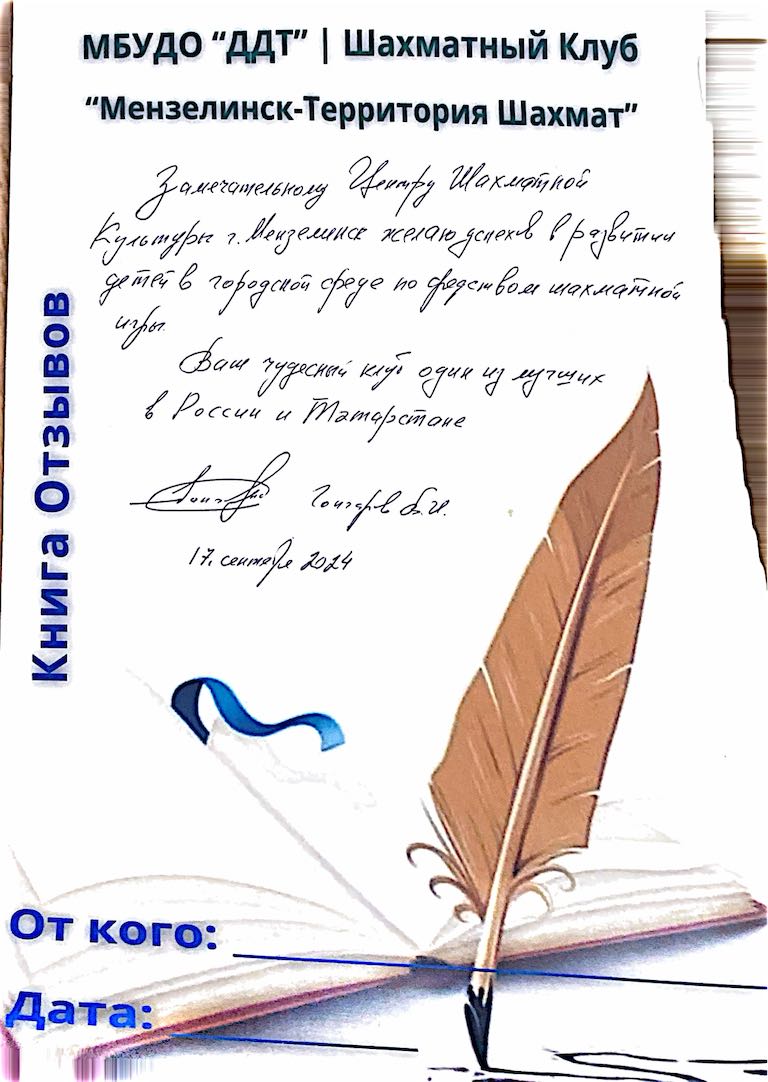 МБУДО “ДДТ” | Шахматный Клуб
“Мензелинск-Территория Шахмат”
Замечательному Центру Шахматной
Культуры г. Мензелинск желаю успехов в развитии
детей в городской среде по средством шахматной
игры.
Ваш чудесный клуб один из лучших
в России и Татарстане
Гончаров Б.И.
17. сентября 2024
Книга Отзывов
От кого:
Дата: